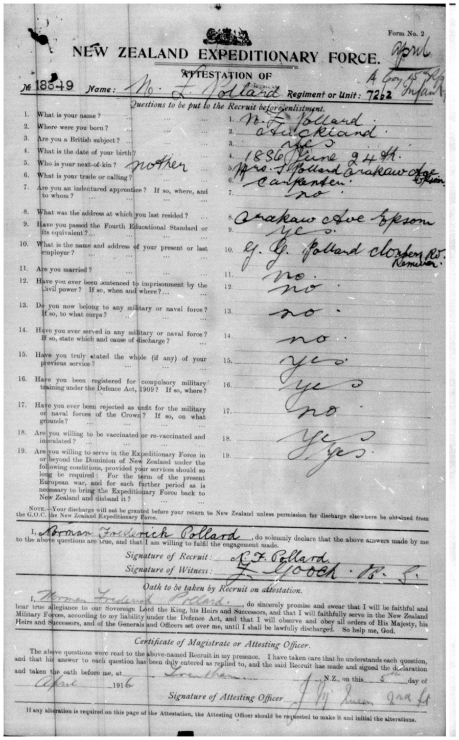 Form No. 2
April
NEW ZEALAND EXPEDITIONARY FORCE.
A Coy 15 Rfs
Infantry
ATTESTATION OF
№ 18649 Name: N. F. Pollard Regiment or Unit: 7262
Questions to be put to the Recruit before enlistment.
1. What is your name? 1. N. F. Pollard.
2. Where were you born? 2. Auckland
3. Are you a British subject? 3. yes
4. What is the date of your birth? 4. 1886 June 24th.
5. Who is your next-of-kin? mother 5. Mrs. Pollard Arakaw Ave Epsom
6. What is your trade or calling? 6. Carpenter.
7. Are you an indentured apprentice? If so, where, and to whom? 7. no.
8. What was the address at which you last resided? 8. Arakaw Ave Epsom
9. Have you passed the Fourth Educational Standard or its equivalent? 9. yes
10. What is the name and address of your present or last employer? 10. G. G. Pollard Rd. Remuera.
11. Are you married? 11. no.
12. Have you ever been sentenced to imprisonment by the Civil power? If so, when and where? 12. no.
13. Do you now belong to any military or naval force? If so, to what corps? 13. no
14. Have you ever served in any military or naval force? If so, state which and cause of discharge? 14. no.
15. Have you truly stated the whole (if any) of your previous service? 15. yes
16. Have you been registered for compulsory military training under the Defence Act, 1909? If so, where? 16. yes
17. Have you ever been rejected as unfit for the military or naval forces of the Crown? If so, on what grounds? 17. no
18. Are you willing to be vaccinated or re-vaccinated and inoculated? 18. yes
19. Are you willing to serve in the Expeditionary Force in or beyond the Dominion of New Zealand under the following conditions, provided your services should so long be required: For the term of the present European war, and for such further period as is necessary to bring the Expeditionary Force back to New Zealand and disband it? 19. yes.
NOTE.—Your discharge will not be granted before your return to New Zealand unless permission for discharge elsewhere be obtained from the G.O.C. the New Zealand Expeditionary Force.
I, Norman Frederick Pollard, do solemnly declare that the above answers made by me
to the above questions are true, and that I am willing to fulfil the engagement made.
Signature of Recruit: N. F. Pollard
Signature of Witness: F. Gooch
Oath to be taken by Recruit on attestation.
I, Norman Frederick Pollard, do sincerely promise and swear that I will be faithful and
bear true allegiance to our Sovereign Lord the King, his Heirs and Successors, and that I will faithfully serve in the New Zealand
Military Forces, according to my liability under the Defence Act, and that I will observe and obey all orders of His Majesty, his
Heirs and Successors, and of the Generals and Officers set over me, until I shall be lawfully discharged. So help me, God.
Certificate of Magistrate or Attesting Officer.
The above questions were read to the above-named Recruit in my presence. I have taken care that he understands each question,
and that his answer to each question has been duly entered as replied to, and the said Recruit has made and signed the declaration
and taken the oath before me, at Trentham, N.Z., on this 5th day of
April 1916
Signature of Attesting Officer: 2nd Lt
If any alteration is required on this page of the Attestation, the Attesting Officer should be requested to make it and initial the alterations.